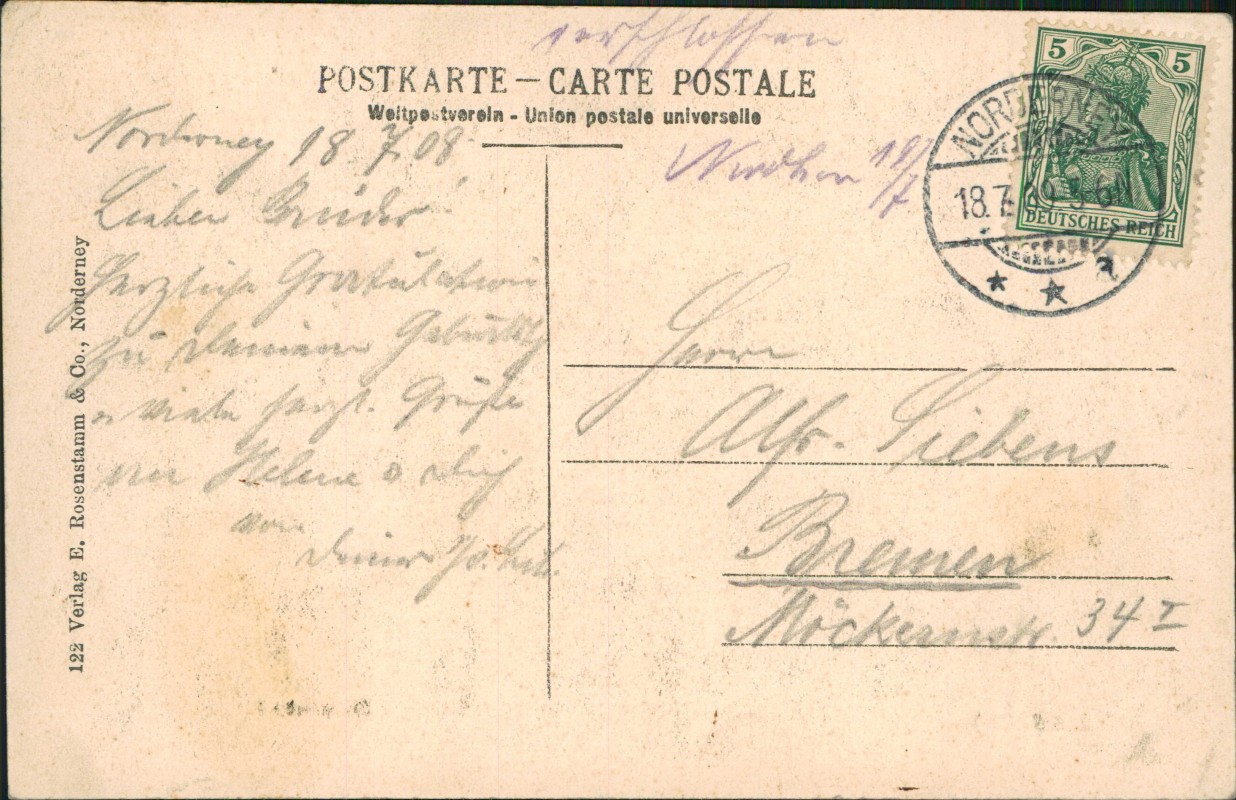 verschlossen
POSTKARTE — CARTE POSTALE
Weltpostverein - Union postale universelle
Norderney 18 7 08
Lieber Bruder!
Herzliche Gratulation
zu Deinem Geburtstg
u viele herzl. Grüße
Helene &
von
Deiner
122 Verlag E. Rosenstamm & Co., Norderney
19/7
5 5
DEUTSCHES REICH
NORDERNEY
18.7. 5-6N
* * a
Herrn
Alfr. Siebens
Bremen
Möckernstr. 34 I